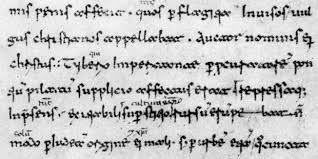 mis penis affecit. quos p flagitia Invisos vul
gus christianos appellabat. Auctor nominis ei
christus. Tiberio Imperitante p procuratore pon
tiu pilatu supplicio affectus erat Repressaq.
Inpsens. exitiabilis supstitio rursu erupe bat
modo p iudea origine ei mali. s. p urbe